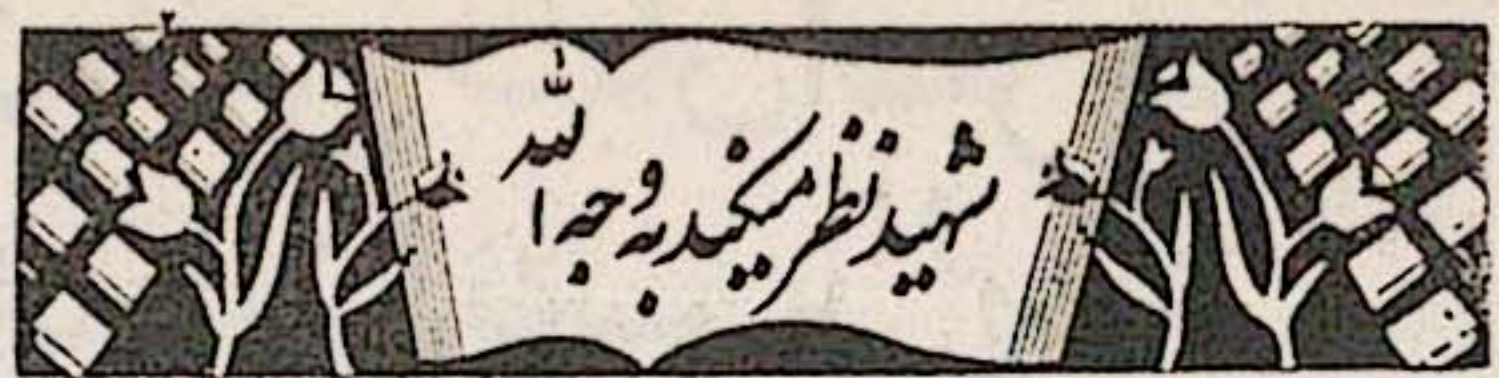 ۲
شهید نظر میکند به وجه الله